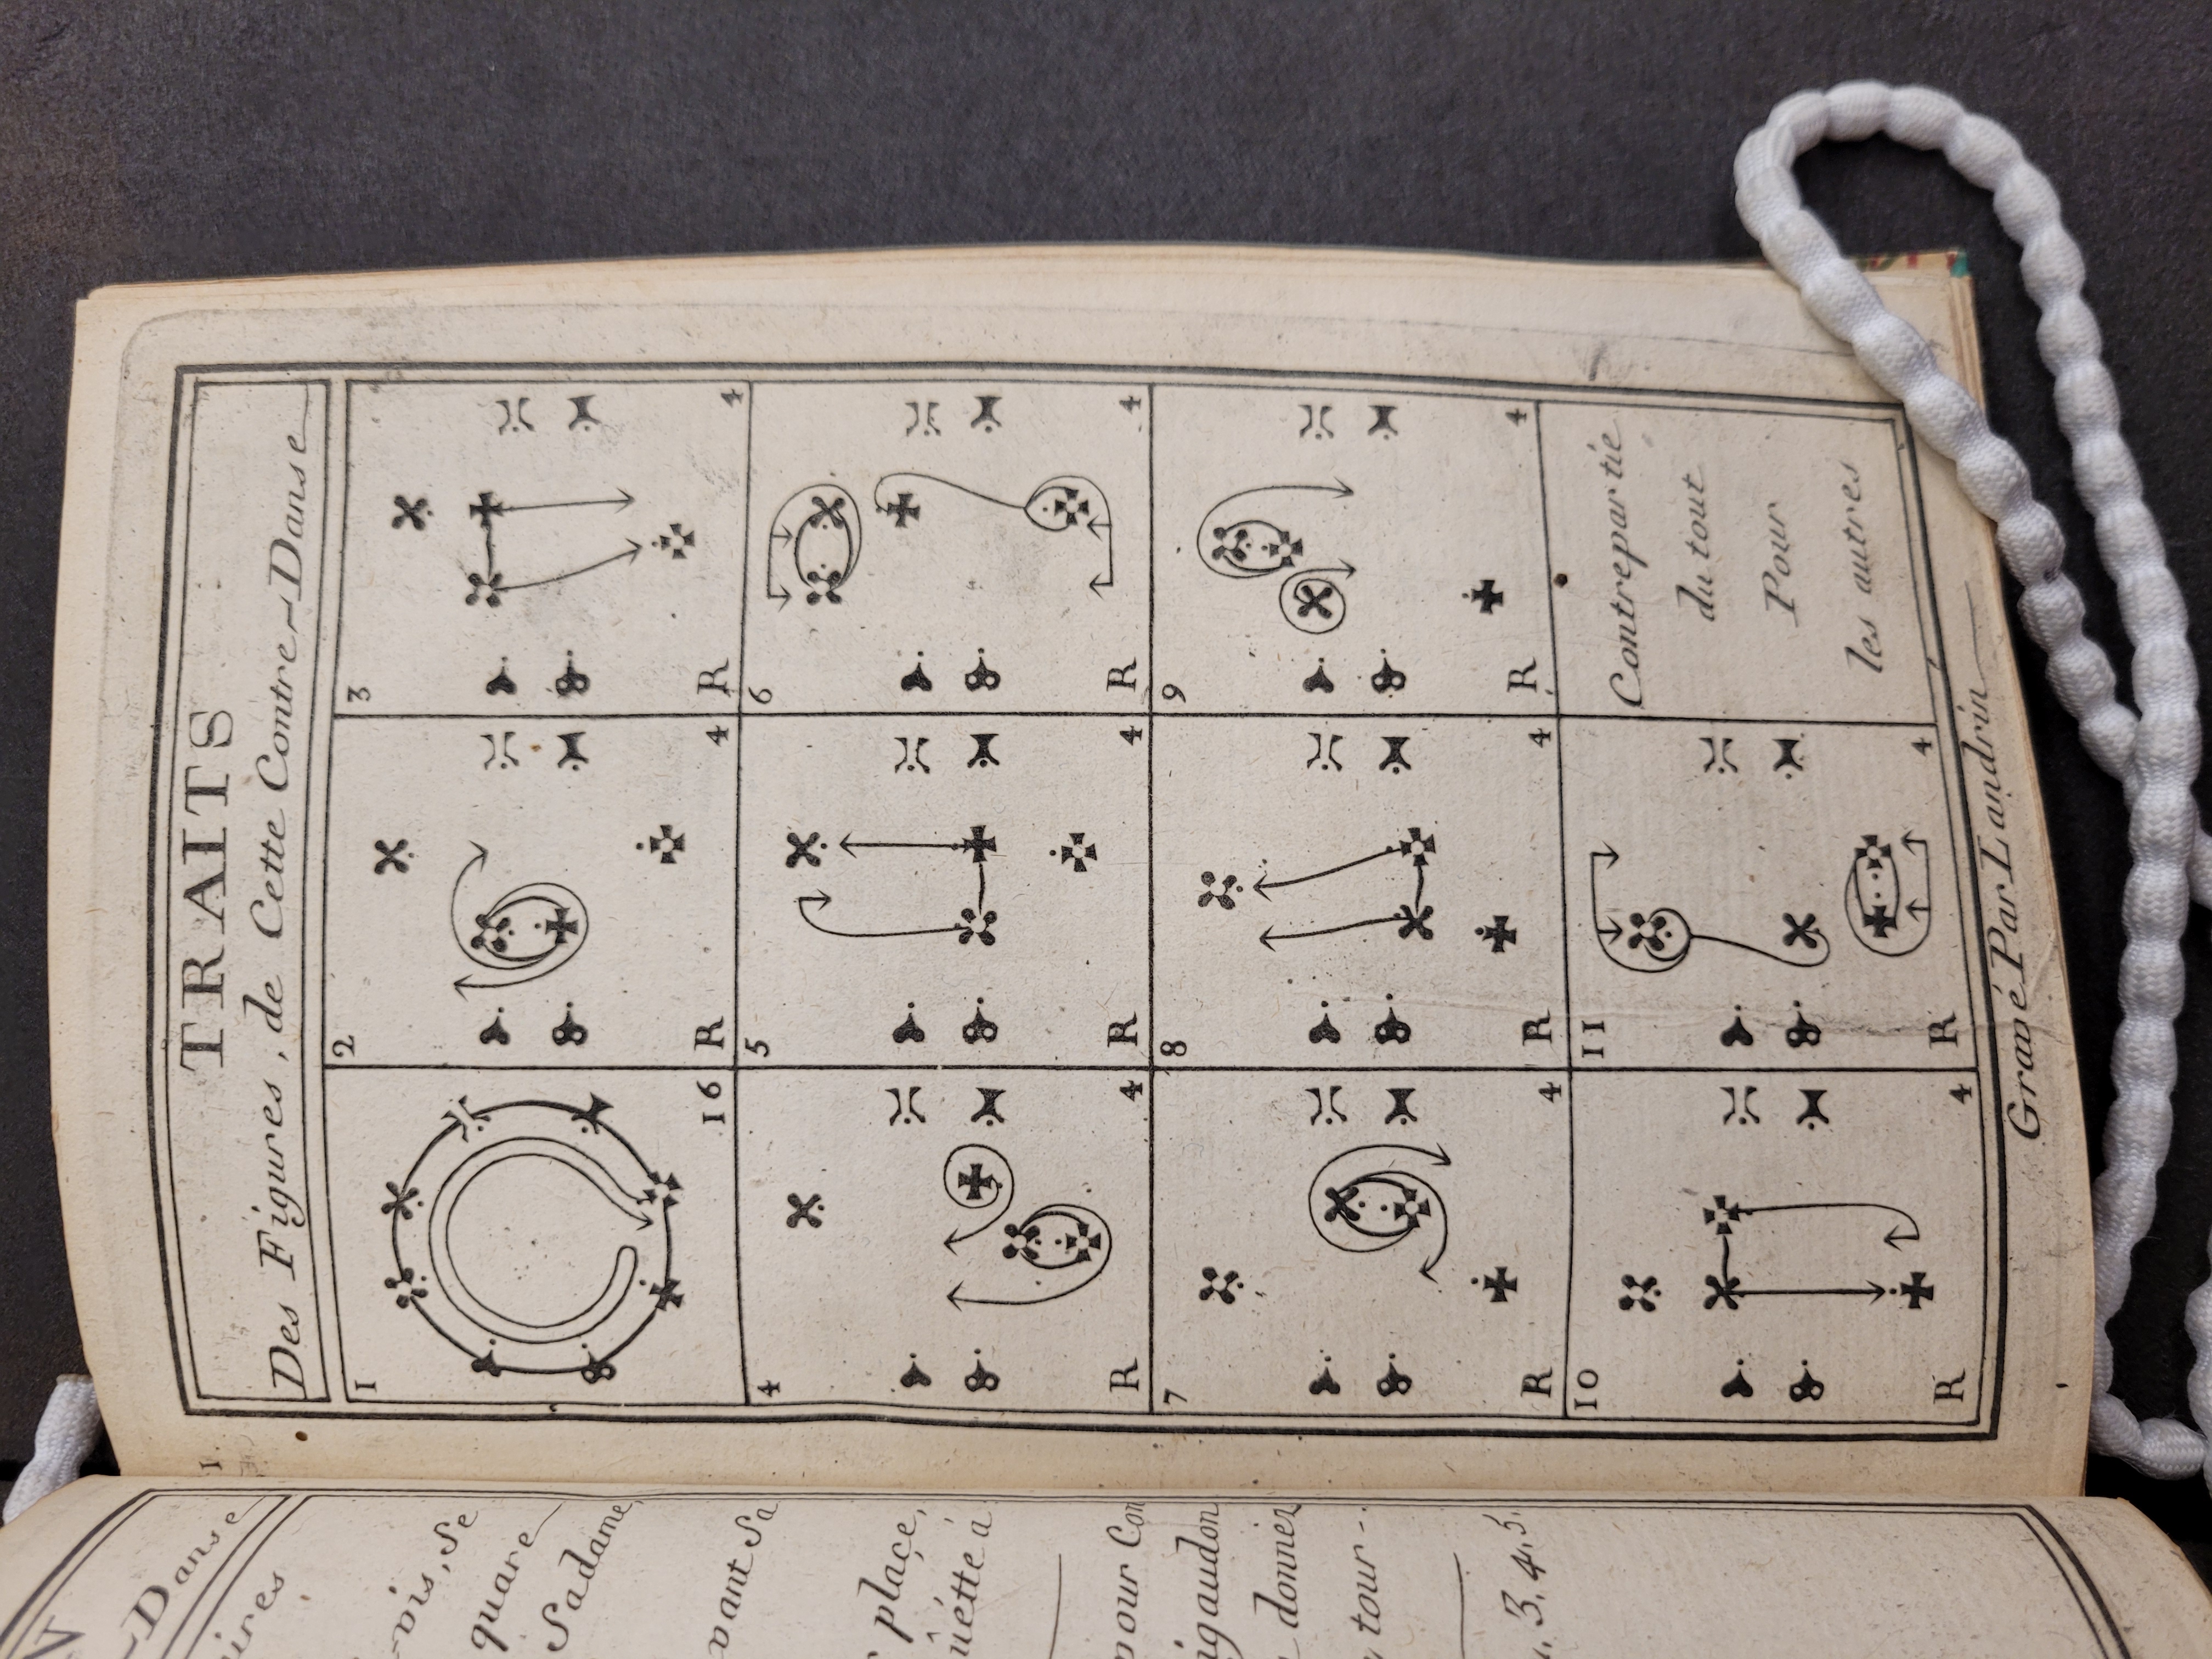 TRAITS
Des Figures, de Cette Contre-Danse
1
16
2
R
4
3
R
4
4
R
4
5
R
4
6
R
4
7
R
4
8
R
4
9
R
4
10
R
4
11
R
4
Contrepartie
du tout
Pour
les autres
Gravé Par Landrin
1.
-Danse
ires
-vis, Se
quare
Sadame,
vant Sa
place,
pour Con
igaudon
donner
tour-..
3. 4. 5.